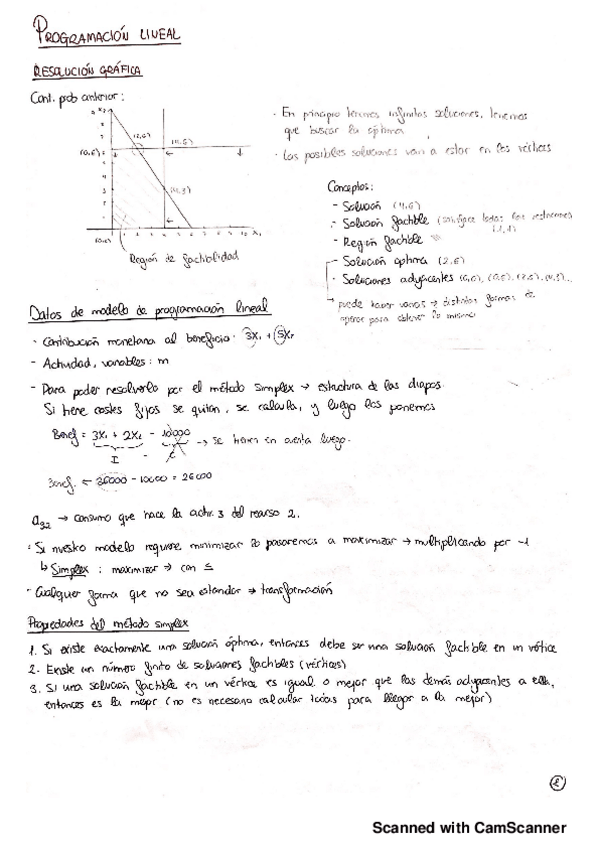 PROGRAMACIÓN LINEAL
RESOLUCIÓN GRÁFICA
Cont. prob anterior:
(2,6)
(4,6)
(0,6)
(4,3)
(0,0)
Región de factibilidad
- En principio tenemos infinitas soluciones, tenemos
que buscar la óptima
- Las posibles soluciones van a estar en los vértices
Conceptos:
- Solución (4,6)
- Solución factible (satisface todas las restricciones
(1,1)
- Región factible
- Solución óptima (2,6)
- Soluciones adyacentes (0,0), (0,6), (2,6), (4,3)...
puede haber varios → distintas formas de
operar para obtener lo mismo
Datos de modelo de programación lineal
- Contribución monetaria al beneficio: 3X₁ + 5X₂
- Actividad, variables: m
- Para poder resolverlo por el método simplex → estructura de las diapos.
Si tiene costes fijos se quitan, se calcula, y luego los ponemos
Benef = 3X₁ + 2X₂ - 10000 → se tienen en cuenta luego.
I - C
Benef. = 36000 - 10000 = 26000
a₃₂ → consumo que hace la activ. 3 del recurso 2.
- Si nuestro modelo requiere minimizar lo pasaremos a maximizar → multiplicando por -1
↳ Simplex: maximizar → con ≤
- Cualquier forma que no sea estandar → transformación
Propiedades del método simplex
1. Si existe exactamente una solución óptima, entonces debe ser una solución factible en un vértice
2. Existe un número finito de soluciones factibles (vértices)
3. Si una solución factible en un vértice es igual o mejor que las demás adyacentes a ella,
entonces es la mejor (no es necesario calcular todas para llegar a la mejor)
Scanned with CamScanner